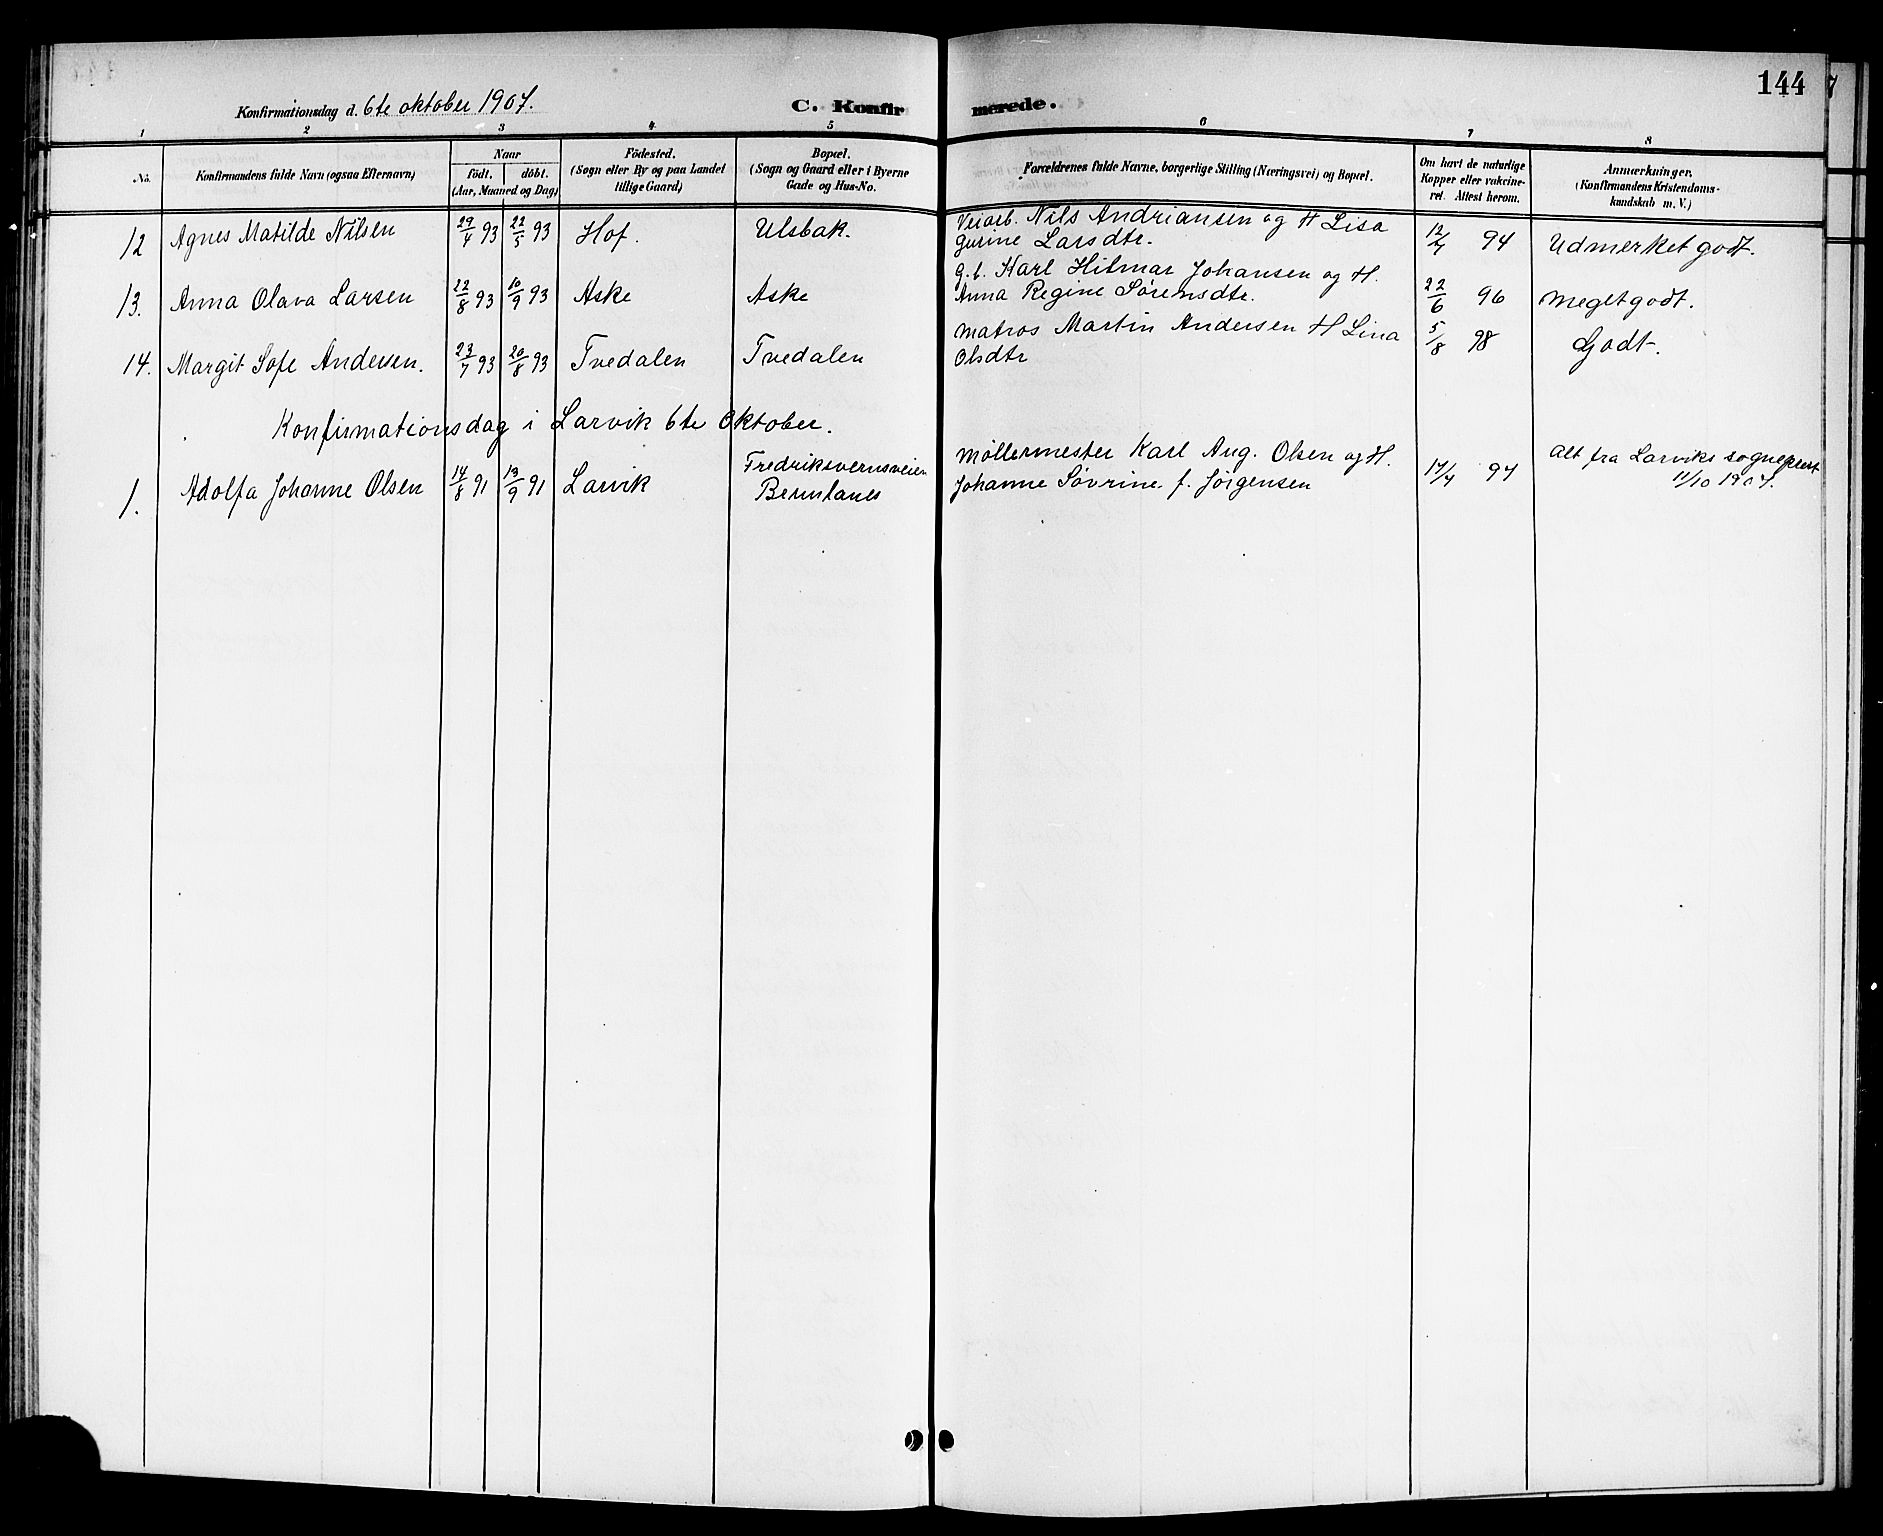 144
Konfirmationsdag d. 6te oktober 1907.
C. Konfirmerede.
1 2 3 4 5 6 7 8
No.
Konfirmandens fulde Navn (ogsaa Efternavn)
Naar
födt. döbt.
(Aar, Maaned og Dag)
Födested.
(Sogn eller By og paa Landet
tillige Gaard)
Bopæl.
(Sogn og Gaard eller i Byerne
Gade og Hus-No.
Forældrenes fulde Navne, borgerlige Stilling (Næringsvei) og Bopæl.
Om havt de naturlige
Kopper eller vakcine-
ret. Attest herom.
Anmærkninger,
(Konfirmandens Kristendoms-
kundskab m. V.)
12 Agnes Matilde Nilsen 29/4 93 22/5 93 Hof. Ulsbak. Veiarb. Nils Andriansen og H Lisa
Gurine Larsdtr. 12/7 94 Udmerket godt.
13. Anna Olava Larsen 22/8 93 10/9 93 Aske Aske g.b. Karl Hilmar Johansen og H.
Anna Regine Sørensdtr. 22/6 96 Meget godt.
14. Margit Sofie Andersen. 23/7 93 20/8 93 Tvedalen Tvedalen Matros Martin Andersen H Lina
Olsdtr 5/8 98 Godt.
Konfirmationsdag i Larvik 6te Oktober.
1. Adolfa Johanne Olsen 14/8 91 13/9 91 Larvik Fredriksvernsveien
Møllermester Karl Aug. Olsen og H.
Johanne Søvrine f. Jørgensen 17/4 97 Alt fra Larviks sogneprest
11/10 1907.